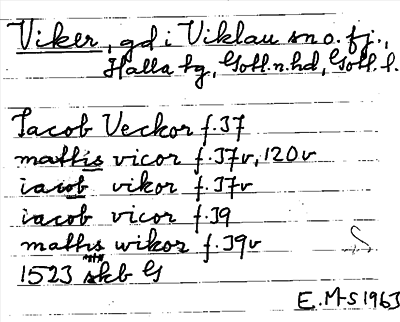 Viker, gd i Viklau sn o. fj.,
Halla tg, Gotl. n. hd, Gotl. l.
Jacob Veckor f. 37
mathis vicor f. 37v, 120v
iacob vikor f. 37v
iacob vicor f. 39
mathis wikor f. 39v
1523 skb G
E. M-S 1963